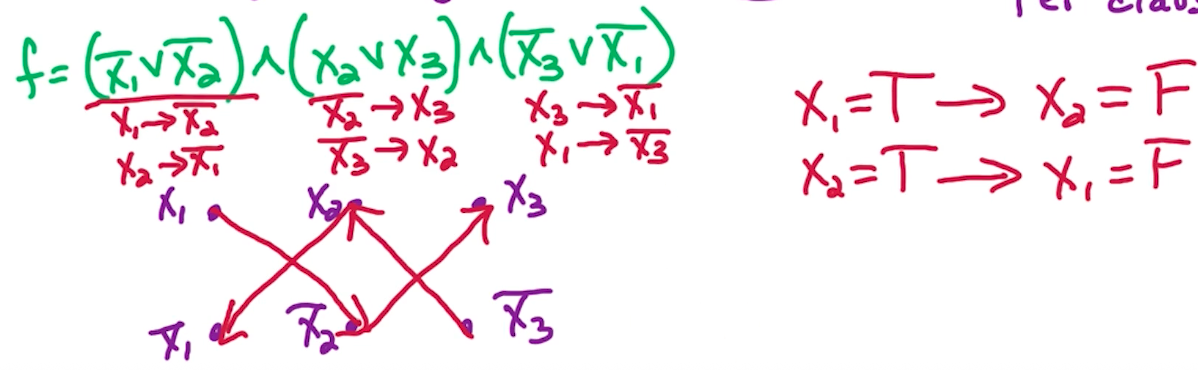 Per claus
f = (x̅₁ ∨ x̅₂) ∧ (x₂ ∨ x₃) ∧ (x̅₃ ∨ x̅₁)
x₁ → x̅₂ x̅₂ → x₃ x₃ → x̅₁
x₂ → x̅₁ x̅₃ → x₂ x₁ → x̅₃
x₁ = T → x₂ = F
x₂ = T → x₁ = F
x₁ x₂ x₃
x̅₁ x̅₂ x̅₃